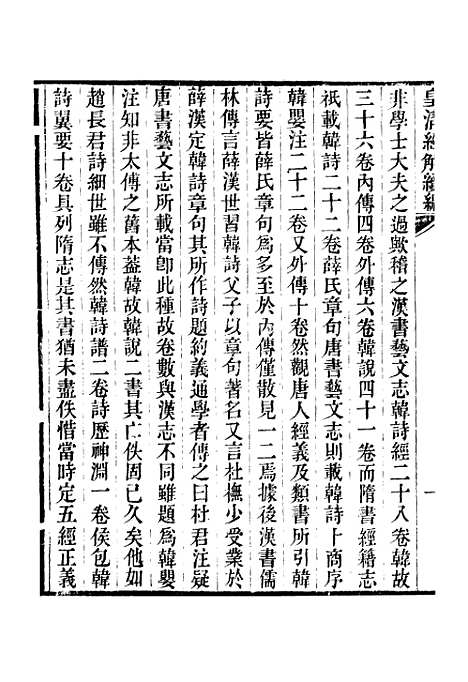 皇清經解續編
非學士大夫之過歟稽之漢書藝文志韓詩經二十八卷韓故
三十六卷內傳四卷外傳六卷韓說四十一卷而隋書經籍志
祇載韓詩二十二卷薛氏章句唐書藝文志則載韓詩卜商序
韓嬰注二十二卷又外傳十卷然觀唐人經義及類書所引韓
詩要皆薛氏章句爲多至於內傳僅散見一二焉據後漢書儒
林傳言薛漢世習韓詩父子以章句著名又言杜撫少受業於
薛漢定韓詩章句其所作詩題約義通學者傳之曰杜君注疑
唐書藝文志所載當卽此種故卷數與漢志不同雖題爲韓嬰
注知非太傅之舊本葢韓故韓說二書其亡佚固已久矣他如
趙長君詩細世雖不傳然韓詩譜二卷詩歷神淵一卷侯包韓
詩翼要十卷具列隋志是其書猶未盡佚惜當時定五經正義
一